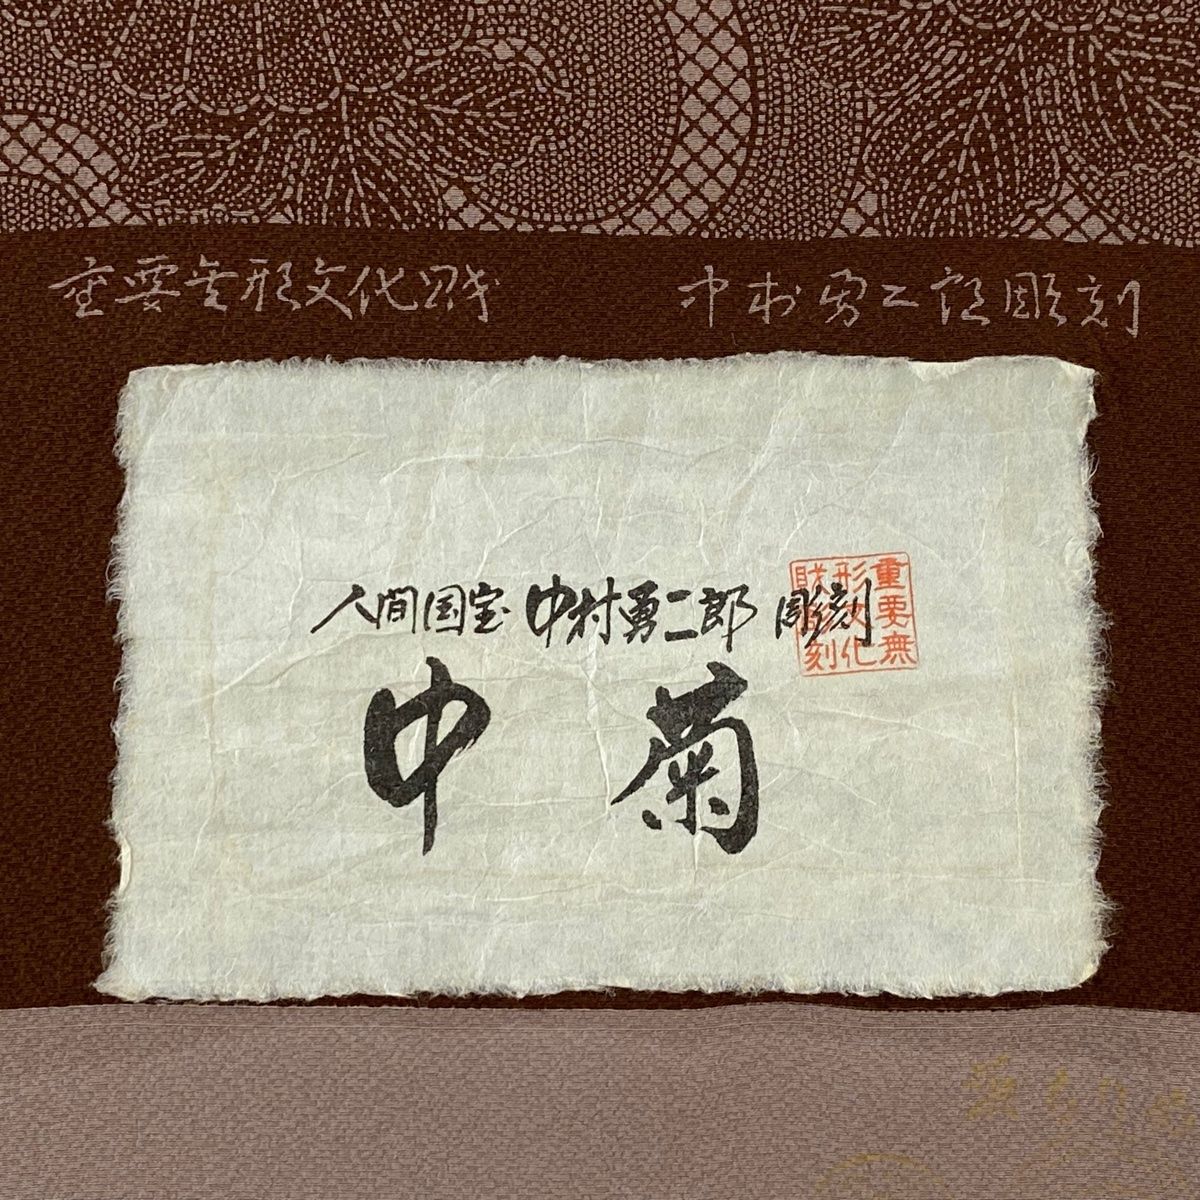 重要無形文化財 中村勇二郎彫刻
人間国宝 中村勇二郎 彫刻
重要無
形文化
財彫刻
中 菊